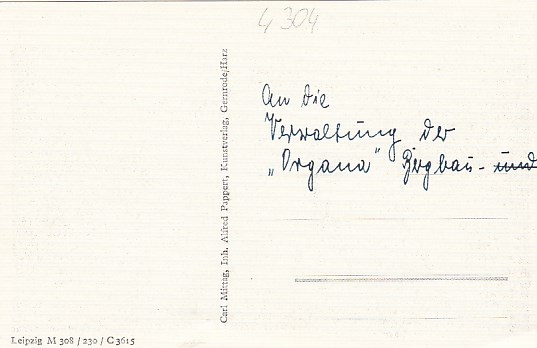 4304
An die
Verwaltung der
„Organa" Bergbau- und
Carl Mittag, Inh. Alfred Pappert, Kunstverlag, Gernrode/Harz
Leipzig M 308 / 230 / C 3615